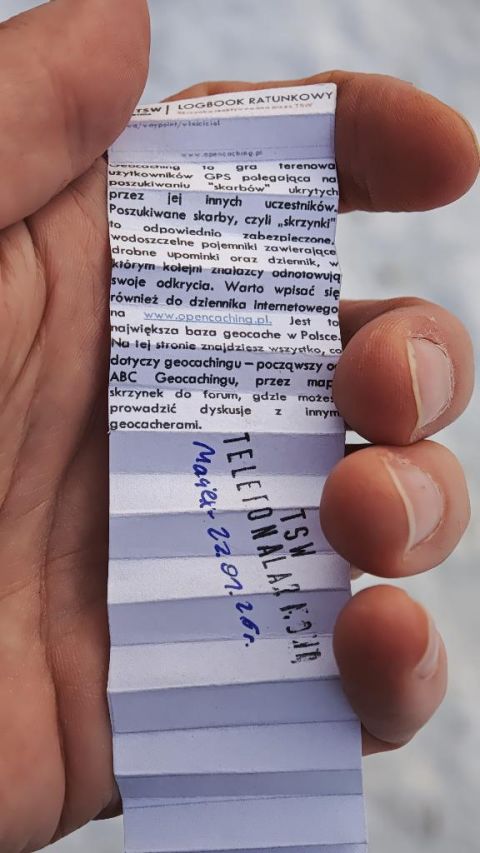 TSW | LOGBOOK RATUNKOWY
www.opencaching.pl
Geocaching to gra terenowa
użytkowników GPS polegająca na
poszukiwaniu "skarbów" ukrytych
przez jej innych uczestników.
Poszukiwane skarby, czyli „skrzynki"
to odpowiednio zabezpieczone,
wodoszczelne pojemniki zawierające
drobne upominki oraz dziennik, w
którym kolejni znalazcy odnotowują
swoje odkrycia. Warto wpisać się
również do dziennika internetowego
na www.opencaching.pl. Jest to
największa baza geocache w Polsce.
Na tej stronie znajdziesz wszystko, co
dotyczy geocachingu – począwszy od
ABC Geocachingu, przez map
skrzynek do forum, gdzie może
prowadzić dyskusje z innym
geocacherami.
TSW
TELEFONALARMOWA
22.01.26r.